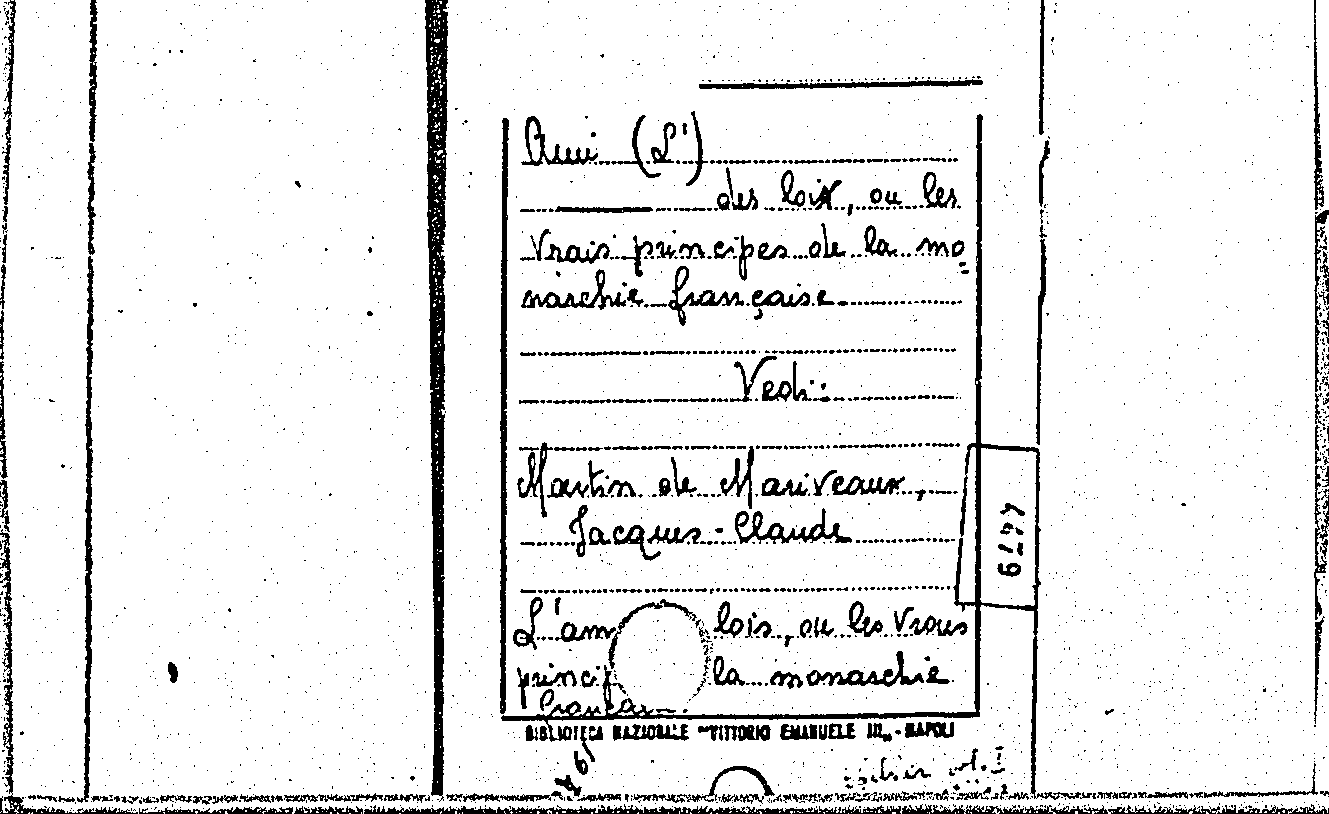 Ami (L')
des loix, ou les
vrais principes de la mo=
narchie française.
Vedi:
Martin de Mariveaux,
Jacques-Claude
L'am lois, ou les vrais
princip la monarchie
BIBLIOTECA NAZIONALE "VITTORIO EMANUELE III„ - NAPOLI